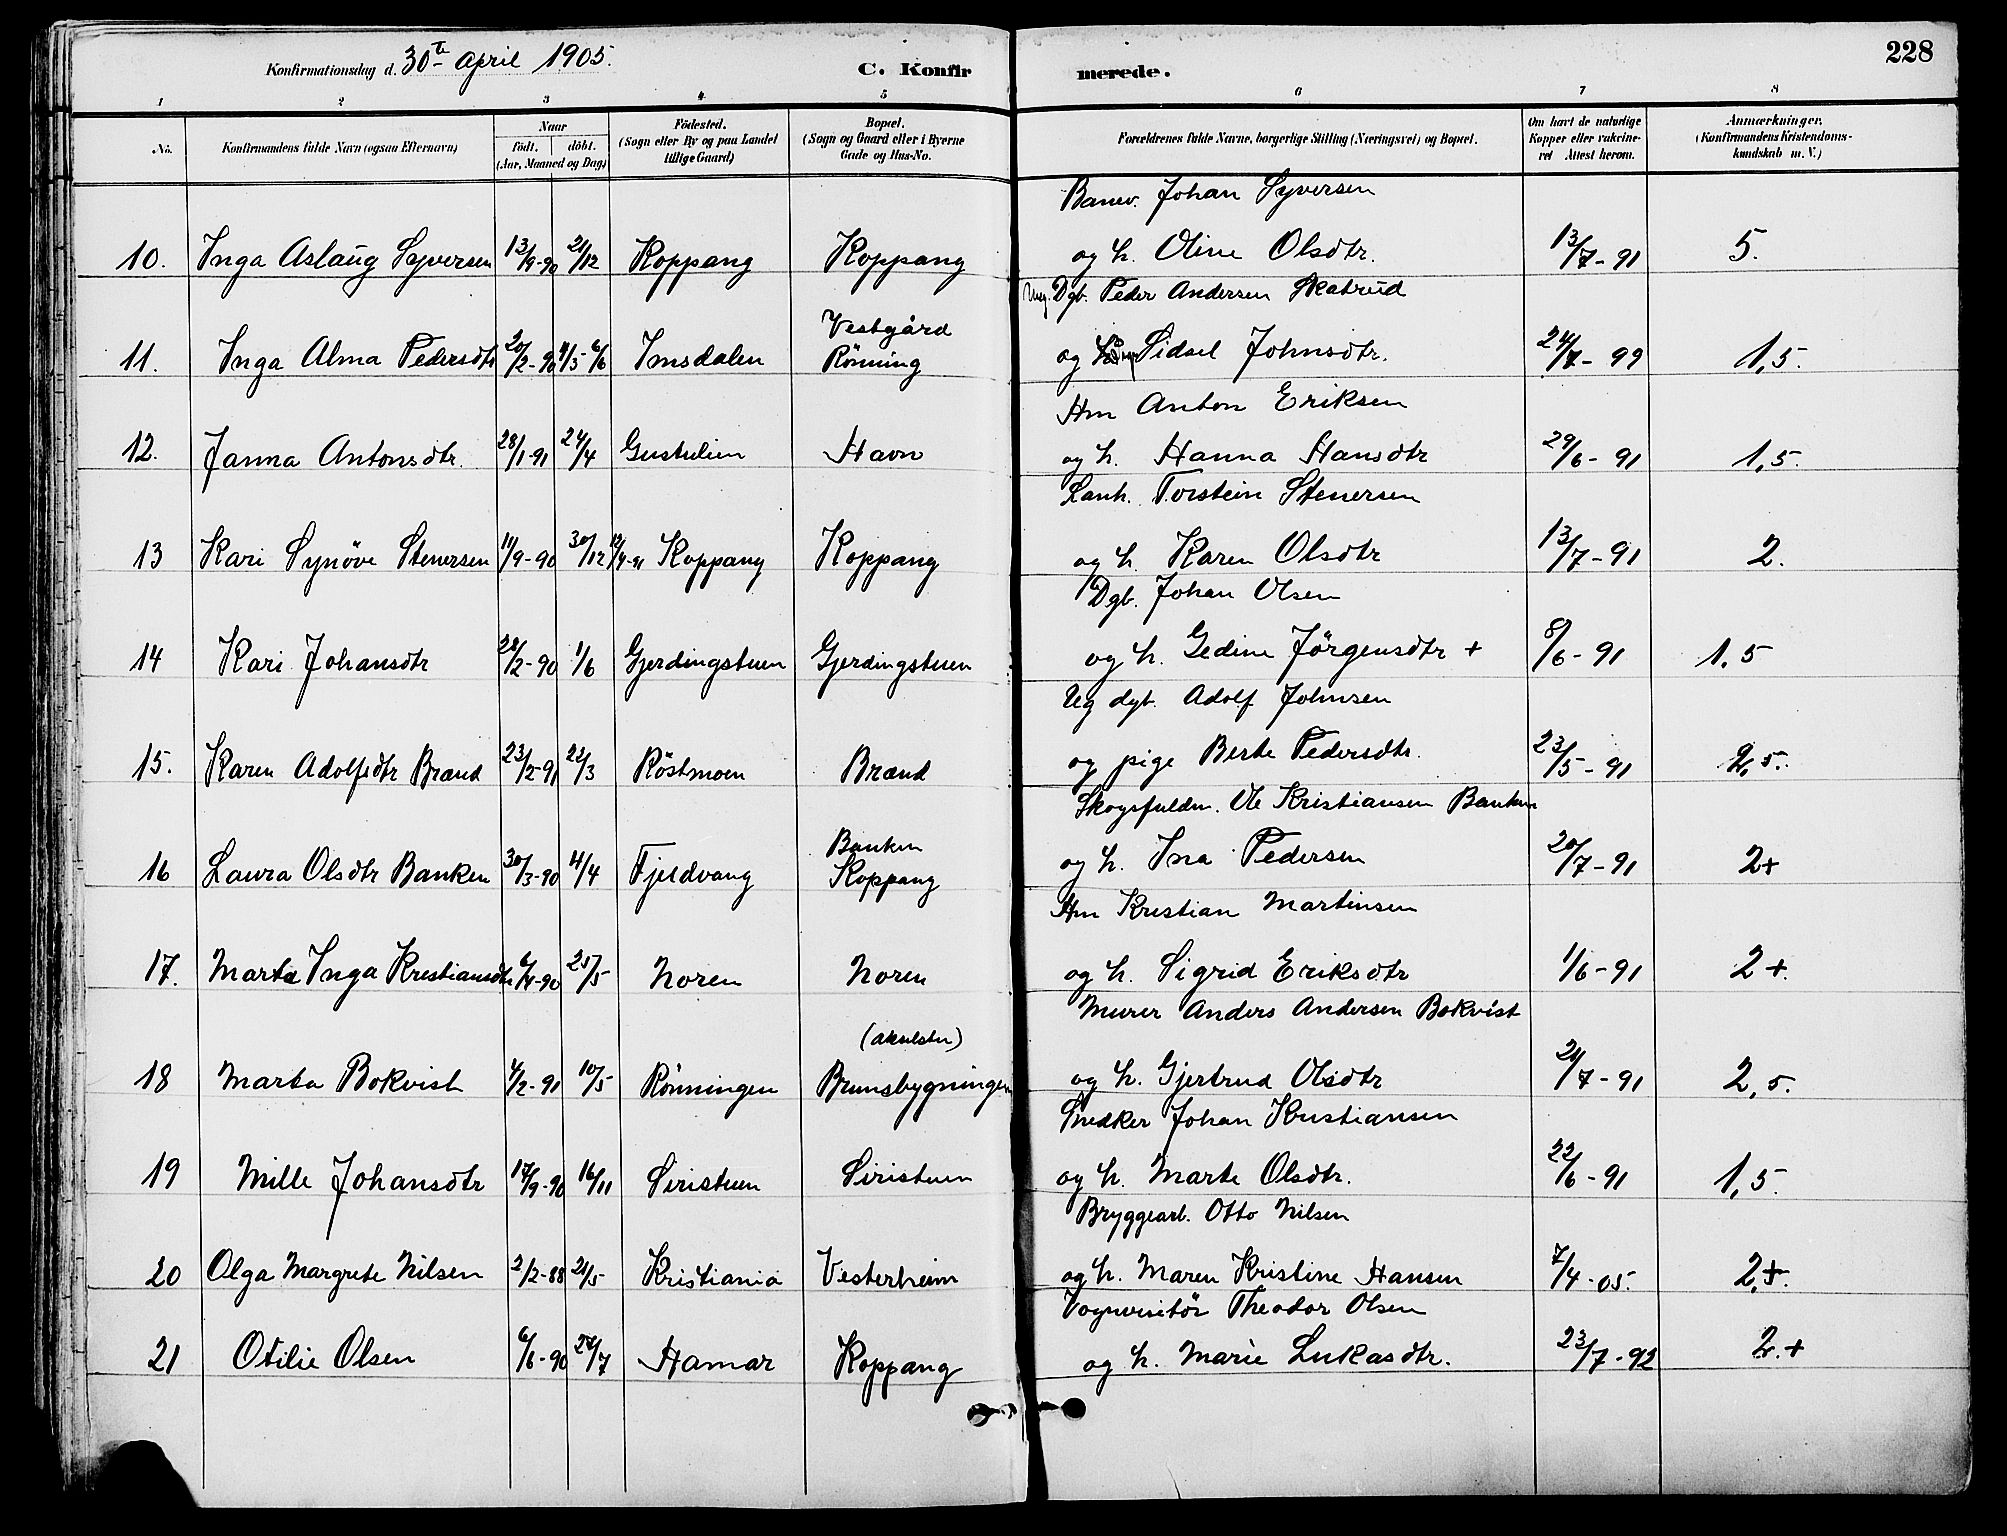 Konfirmationsdag d. 30te April 1905.
C. Konfirmerede.
228
1 2 3 4 5 6 7 8
No.
Konfirmandens fulde Navn (ogsaa Efternavn)
Naar
födt. döbt.
(Aar, Maaned og Dag)
Födested.
(Sogn eller By og paa Landet
tillige Gaard)
Bopæl.
(Sogn og Gaard eller i Byerne
Gade og Hus-No.
Forældrenes fulde Navne, borgerlige Stilling (Næringsvei) og Bopæl.
Om havt de naturlige
Kopper eller vakcine-
ret Attest herom.
Anmærkninger.
(Konfirmandens Kristendoms-
kundskab m. V.)
Banev. Johan Syversen
10. Inga Aslaug Syversen 13/9-90 21/12 Koppang Koppang og h. Oline Olsdtr. 13/7-91 5.
Ung. Dgb. Peder Andersen Skatrud
Vestgård
11. Inga Alma Pedersdtr 20/2-90 4/5-6/6 Imsdalen Rönning og Sidsel Johnsdtr. 24/7-99 1,5.
Hm Anton Eriksen
12. Janna Antonsdtr. 28/1-91 24/4 Gustulien Havn og h. Hanna Hansdtr 29/6-91 1,5.
Lanh. Torstein Stenersen
13 Kari Synöve Stenersen 11/9-90 30/12 12/4-91 Koppang Koppang og h. Karen Olsdtr 13/7-91 2.
Dgb. Johan Olsen
14 Kari Johansdtr 28/2-90 1/6 Gjerdingstuen Gjerdingstuen og h. Gedine Jörgensdtr + 8/6-91 1,5
Ug dgb. Adolf Johnsen
15. Karen Adolfsdtr Brænd 23/2-91 22/3 Röstmoen Brænd og pige Berte Pedersdtr. 23/5-91 2,5.
Skogsfuldm. Ole Kristiansen Banken
Banken
16 Laura Olsdtr Banken 30/3-90 4/4 Fjeldvang Koppang og h. Ina Pedersen 20/7-91 2+
Hm Kristian Martinsen
17. Marta Inga Kristiansdtr 6/4-90 25/5 Noren Noren og h. Sigrid Eriksdtr 1/6-91 2+.
Murer Anders Andersen Bokvist
18 Marta Bokvist 4/2-91 10/5 Rönningen Brunsbygningen og h. Gjertrud Olsdtr 21/7-91 2,5.
Snedker Johan Kristiansen
19 Mille Johansdtr 17/9-90 16/11 Siristuen Siristuen og h. Marte Olsdtr. 22/6-91 1,5.
Bryggearb. Otto Nilsen
20 Olga Margrete Nilsen 2/2-88 21/5 Kristiania Vesterheim og h. Maren Kristine Hansen 7/4-05. 2,5.
Vognvisitör Theodor Olsen
21 Otilie Olsen 6/6-90 27/7 Hamar Koppang og h. Marie Lukasdtr. 23/7-92 2.+